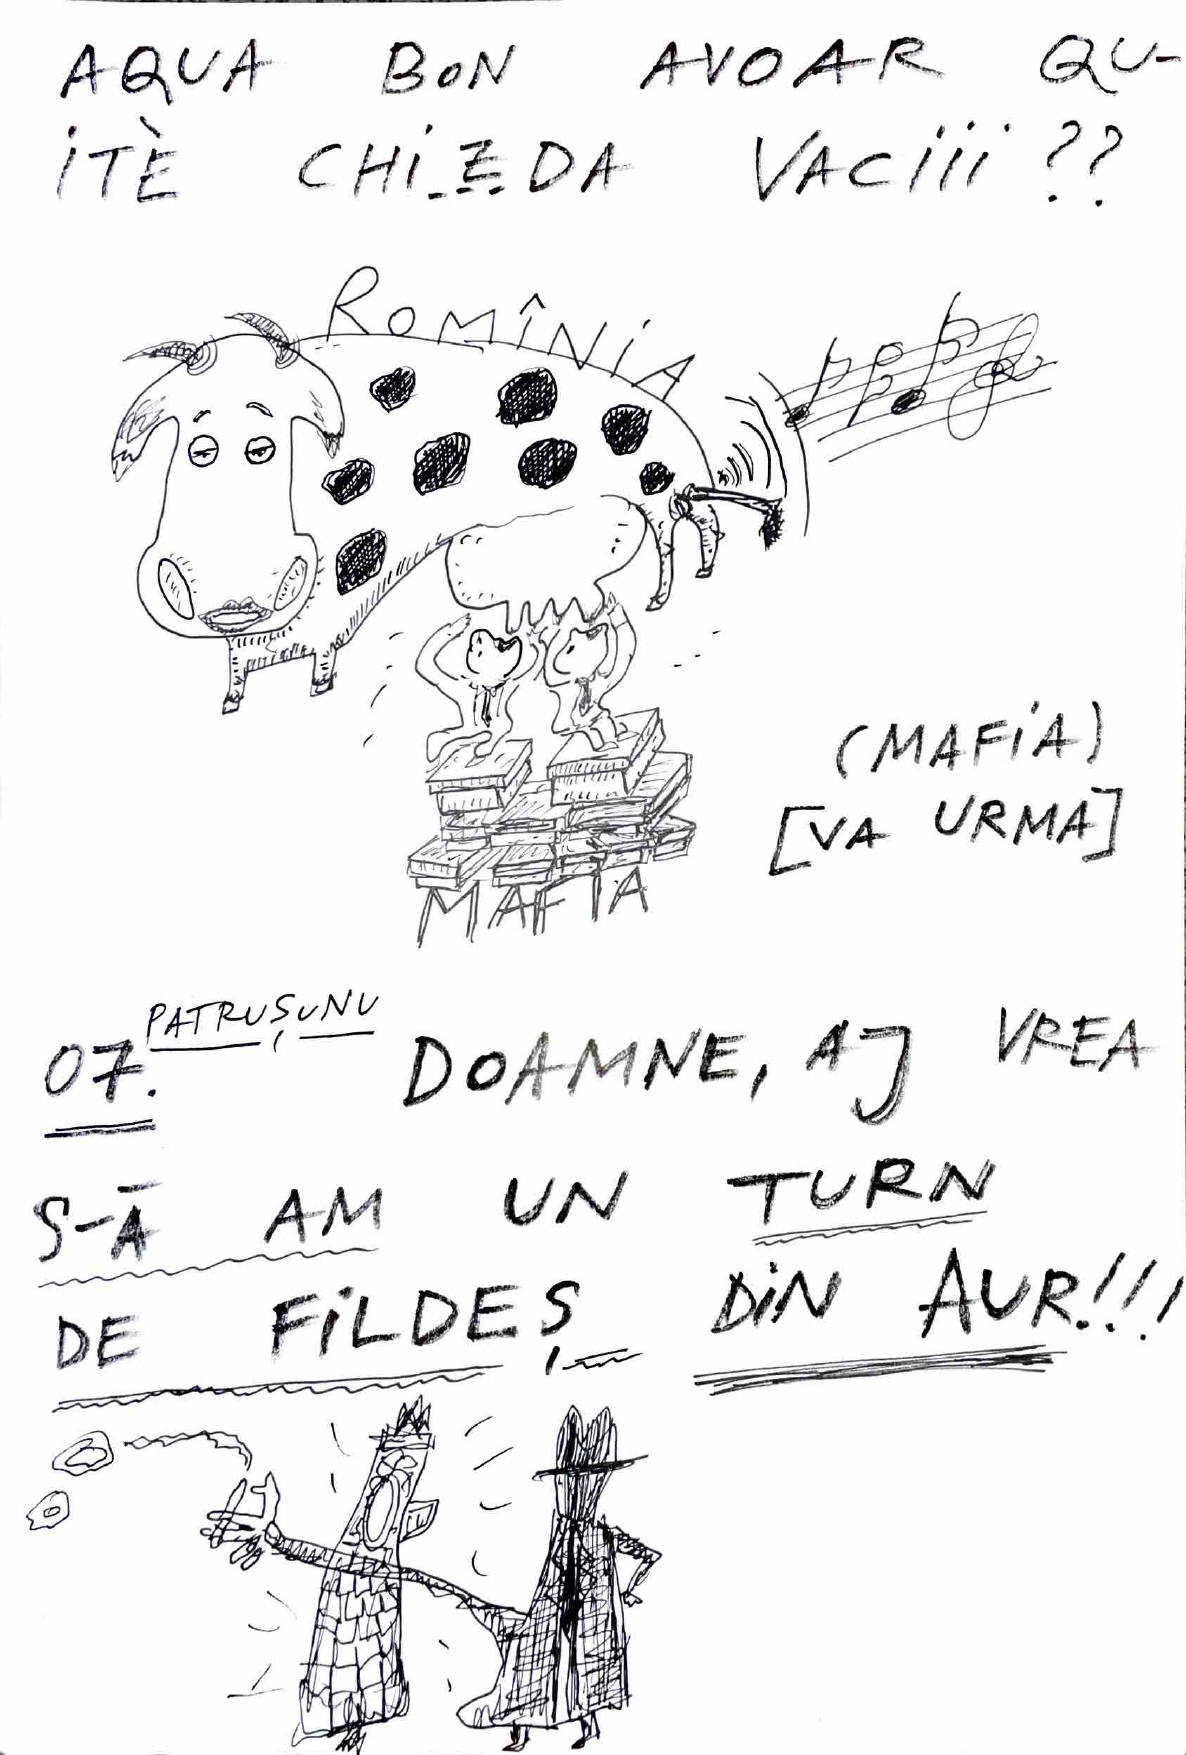 AQUA BON AVOAR QU-
iTÈ CHiEDA VACiii??
ROMÎNiA
(MAFiA)
[VA URMA]
MAFiA
07. PATRUȘUNU DOAMNE, AJ VREA
S-Ā AM UN TURN
DE FiLDEȘ DiN AUR!!!